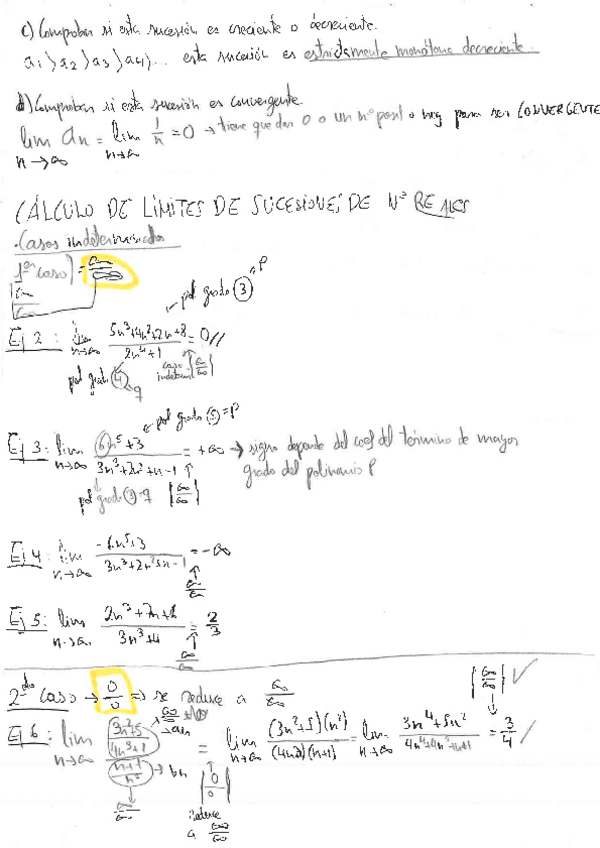 c) Comprobar si esta sucesión es creciente o decreciente.
a1 > a2 > a3 > a4 > ... esta sucesión es estrictamente monótona decreciente.
d) Comprobar si esta sucesión es convergente.
lim n→∞ an = lim n→∞ 1/n = 0 → tiene que dar 0 o un nº posit o neg para ser CONVERGENTE
CÁLCULO DE LÍMITES DE SUCESIONES DE Nº REALES
· Casos indeterminados
1er caso = ∞/∞
∞/∞
pol grado 3 = P
Ej 2: lim n→∞ (5n³+4n²+2n+8)/(2n⁴+1) = 0//
pol grado 4 q
caso indeterm [∞/∞]
pol grado 5 = P
Ej 3: lim n→∞ (6n⁵+3)/(3n³+2n²+n-1) = +∞ → signo depende del coef del término de mayor
grado del polinomio P
pol grado 3 = q [∞/∞]
Ej 4: lim n→∞ (-6n⁵+3)/(3n³+2n²+n-1) = -∞
∞/∞
Ej 5: lim n→∞ (2n³+7n+1)/(3n³+4) = 2/3
∞/∞
[∞/∞] ✓
2do caso → 0/0 ⇒ se reduce a ∞/∞
Ej 6: lim n→∞ ((3n²+5)/(4n³+1))/((n+1)/n²) = lim n→∞ (3n²+5)(n²)/(4n³+1)(n+1) = lim n→∞ (3n⁴+5n²)/(4n⁴+4n³+n+1) = 3/4
→ an
→ bn
∞/∞
[0/0]
Reduce
a ∞/∞